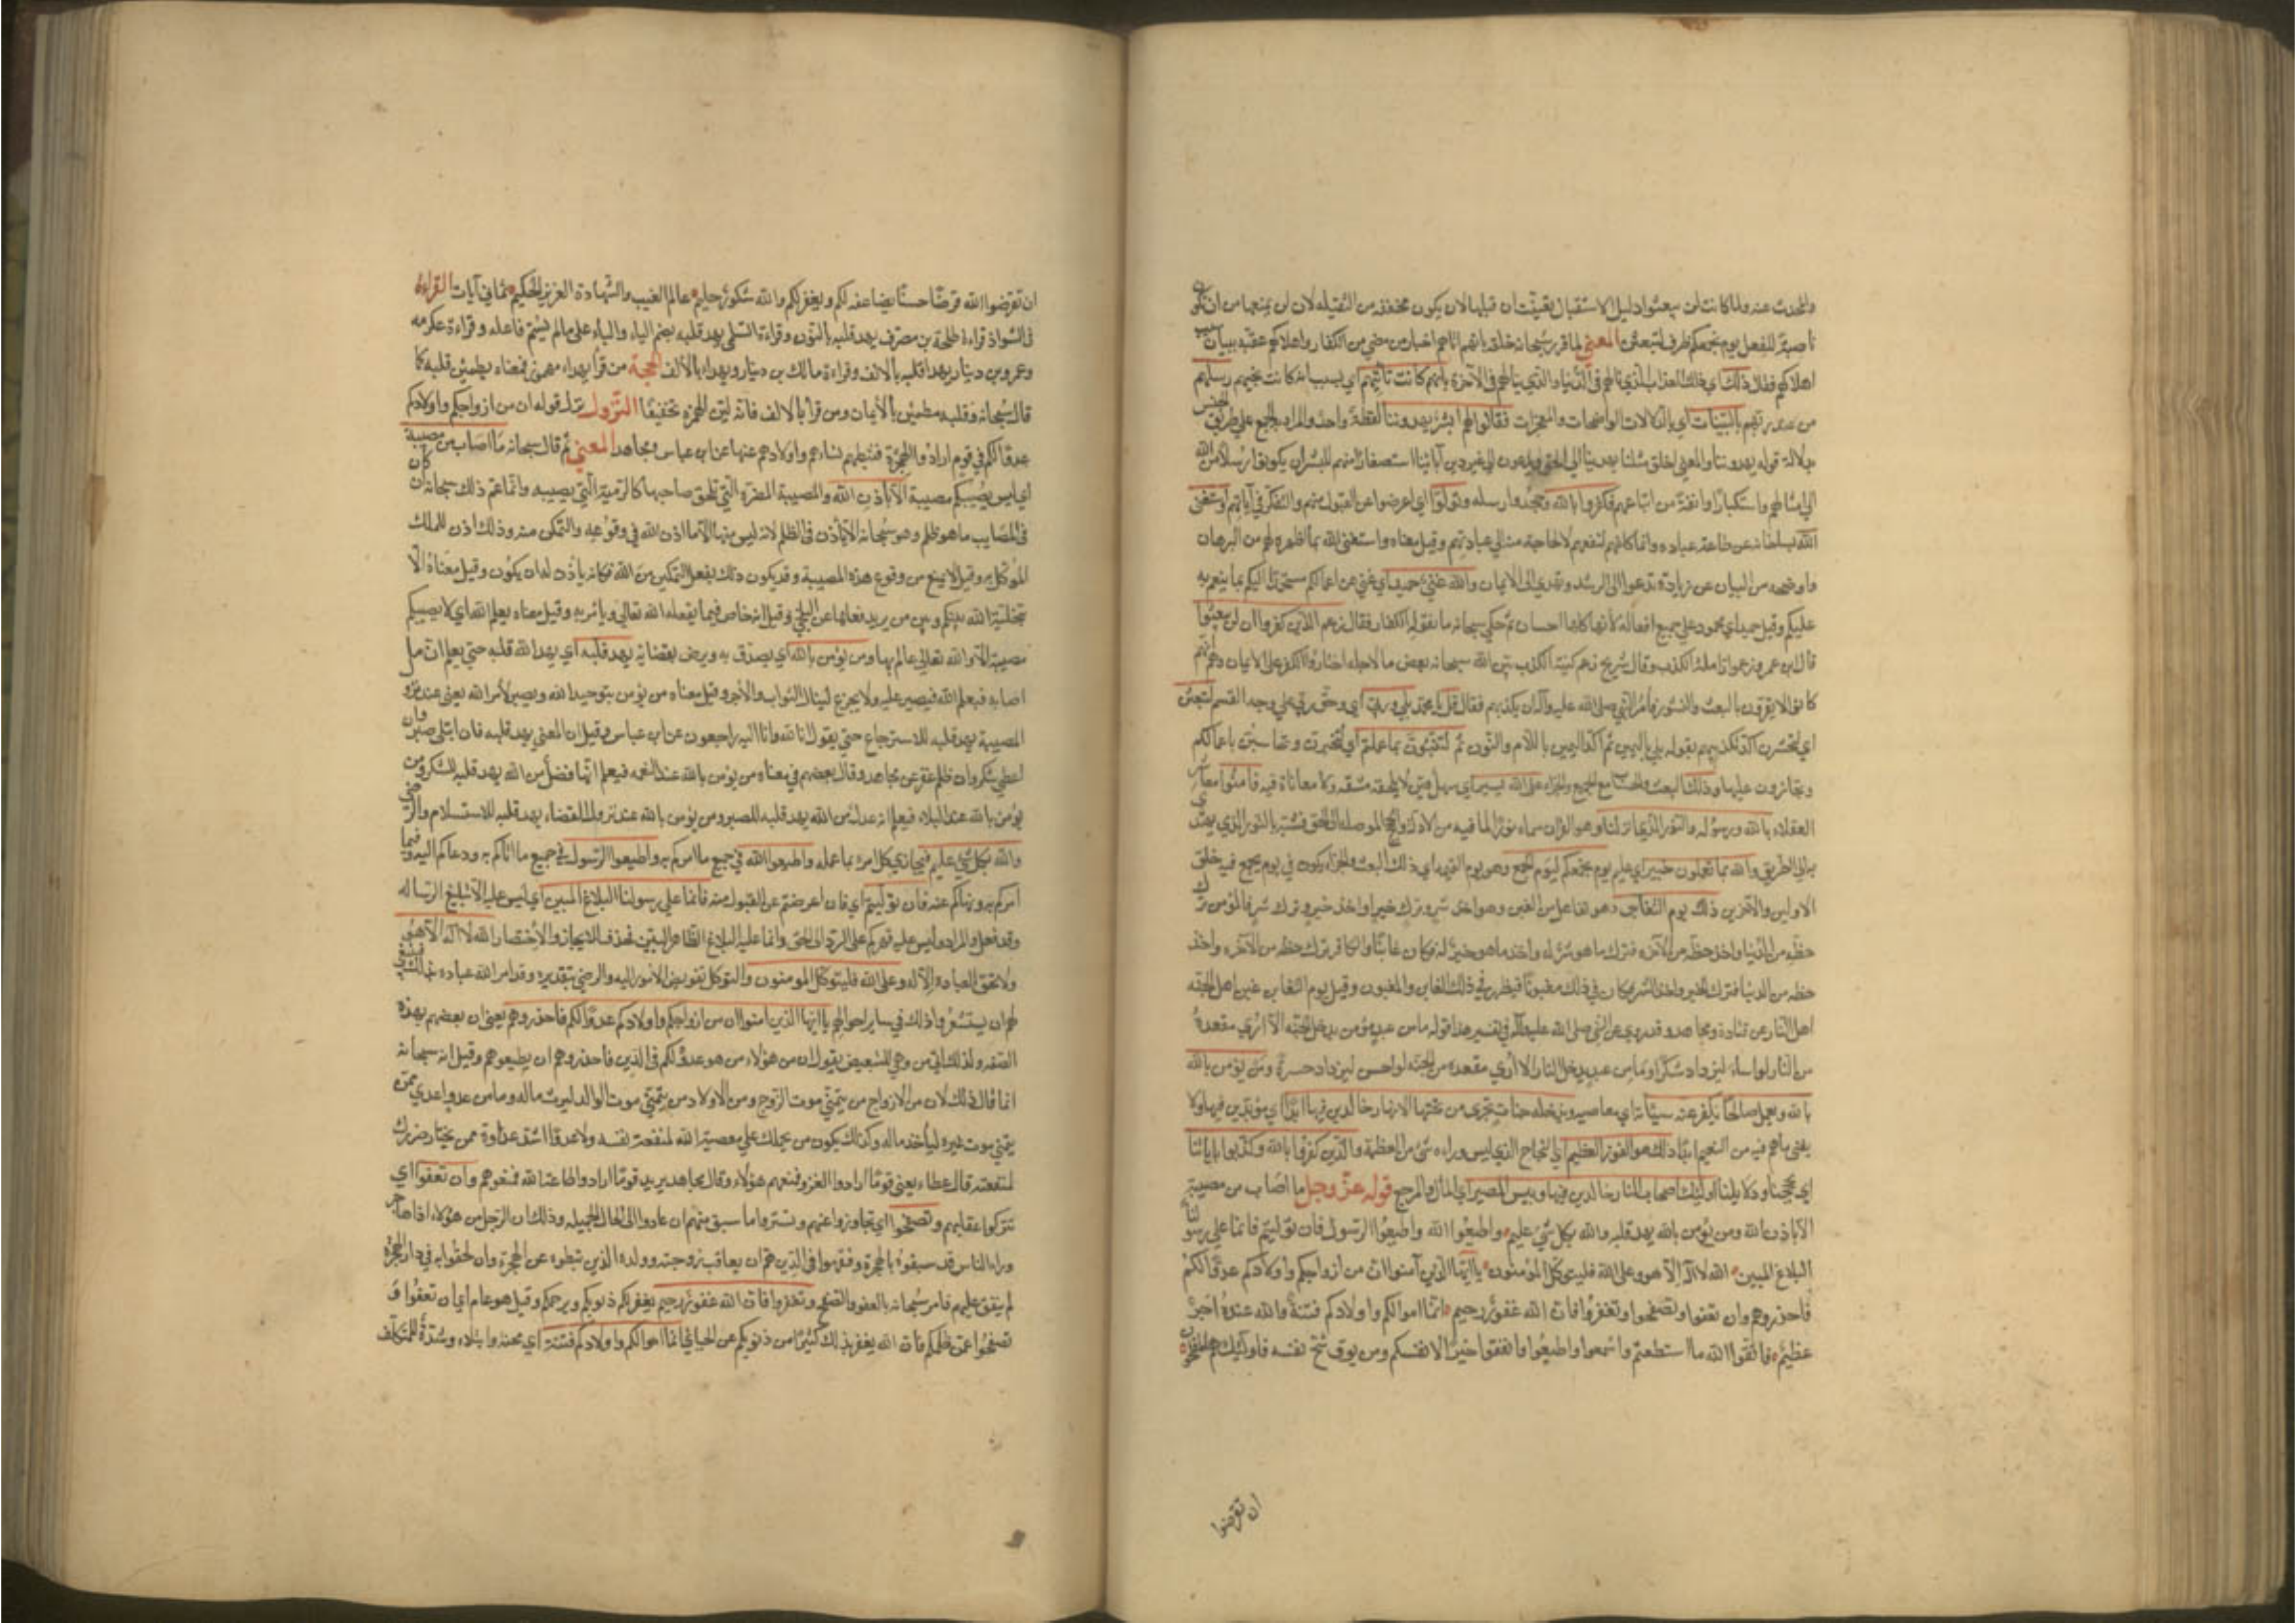 والمحدث عنه ولما كانت لن يبعثوا دليل الاستقبال تعينت ان قبلها لان يكون مخففة من الثقيلة لان لن يمنعها من ان تكون
ناصبة للفعل يوم يجمعكم ظرف لتبعثن المعني لما قرر سبحانه خلقه بانهم اتاهم اخبار من مضي من الكفار واهلاكهم عقبه ببيان سبب
اهلاكهم فقال ذلك اي ذلك العذاب الذي نالهم في الدنيا والذي ينالهم في الآخرة بانهم كانت تاتيهم اي بسبب انه كانت تجيئهم رسلهم
من عند ربهم بالبينات اي بالدلالات الواضحات والمعجزات فقالوا لهم ابشر يهدوننا لفظة واحد والمراد به الجمع علي طريق الجنس
بدلالة قوله يهدوننا والمعني اخلق مثلنا يهدينا الي الحق ويدعون الي غير دين آبائنا استصغارا منهم للبشر ان يكونوا رسلا من الله
الي امثالهم واستكبارا وانفة من اتباعهم فكفروا بالله وجحدوا رسله وتولوا اي اعرضوا عن القبول منهم والتفكر في آياتهم واستغني
الله بسلطانه عن طاعة عباده وانما كلفهم لنفعهم لا لحاجة منه الي عبادتهم وقيل معناه واستغني الله بما اظهره لهم من البرهان
واوضحه من البيان عن زيادة تدعوا الي الرشد وتهدي الي الايمان والله غني حميد اي غني عن اعمالكم مستحمد اليكم بما ينعم به
عليكم وقيل حميد اي محمود علي جميع افعاله لانها كلها احسان ثم حكي سبحانه ما يقوله الكفار فقال زعم الذين كفروا ان لن يبعثوا
قال ابن عمر وزعموا زاملة الكذب وقال شريح زعم كنية الكذب بين الله سبحانه بعض ما لاجله اختاروا الكفر علي الايمان وهم انهم
كانوا لا يقرون بالبعث والنشور فأمر النبي صلي الله عليه وآله ان يكذبهم فقال قل يا محمد بلي وربي اي وحق ربي علي وجه القسم لتبعثن
اي لتحشرن اكد تكذيبهم بقوله بلي باليمين ثم اكد اليمين باللام والنون ثم لتنبئون بما عملتم اي لتخبرن وتحاسبن باعمالكم
وتجازون عليها وذلك البعث والحساب مع الجميع والجزاء علي الله يسير اي سهل هين لا يلحقه مشقة ولا معاناة فيه فآمنوا معاشر
العقلاء بالله ورسوله والنور الذي انزلنا وهو القرآن سماه نورا لما فيه من الادلة والحجج الموصلة الي الحق فشبه بالنور الذي يهتدي
به الي الطريق والله بما تعملون خبير اي عليم يوم يجمعكم ليوم الجمع وهو يوم القيمة اي ذلك البعث والجزاء يكون في يوم يجمع فيه خلق
الاولين والآخرين ذلك يوم التغابن وهو تفاعل من الغبن وهو اخذ شر وترك خير او اخذ خير وترك شر فالمؤمن ترك
حظه من الدنيا واخذ حظه من الآخرة فترك ما هو شر له واخذ ما هو خير له فكان غابنا والكافر ترك حظه من الآخرة واخذ
حظه من الدنيا فترك الخير واخذ الشر فكان في ذلك مغبونا فيظهر في ذلك الغابن والمغبون وقيل يوم التغابن غبن اهل الجنة
اهل النار عن قتادة ومجاهد وقد روي عن النبي صلي الله عليه وآله في تفسير هذا قوله ما من عبد مؤمن يدخل الجنة الا اري مقعده
من النار لو اساء ليزداد شكرا وما من عبد يدخل النار الا اري مقعده من الجنة لو احسن ليزداد حسرة ومن يؤمن بالله
بالله ويعمل صالحا يكفر عنه سيئاته اي معاصيه ويدخله جنات تجري من تحتها الانهار خالدين فيها ابدا اي مؤبدين فيها ولا
يفني ما هم فيه من النعيم ابدا ذلك هو الفوز العظيم اي النجاح الذي ليس وراءه شئ من العظمة والذين كفروا بالله وكذبوا باياتنا
اي بحججنا ودلايلنا اولئك اصحاب النار خالدين فيها وبئس المصير اي المال والمرجع قوله عز وجل ما اصاب من مصيبة
الا باذن الله ومن يؤمن بالله يهد قلبه والله بكل شئ عليم واطيعوا الله واطيعوا الرسول فان توليتم فانما علي رسولنا
البلاغ المبين الله لا اله الا هو وعلي الله فليتوكل المؤمنون يا ايها الذين آمنوا ان من ازواجكم واولادكم عدوا لكم
فاحذروهم وان تعفوا وتصفحوا وتغفروا فان الله غفور رحيم انما اموالكم واولادكم فتنة والله عنده اجر
عظيم فاتقوا الله ما استطعتم واسمعوا واطيعوا وانفقوا خيرا لانفسكم ومن يوق شح نفسه فاولئك هم المفلحون
ان تقرضوا
ان تقرضوا الله قرضا حسنا يضاعفه لكم ويغفر لكم والله شكور حليم عالم الغيب والشهادة العزيز الحكيم ثماني آيات القراءة
في الشواذ قراءة طلحة بن مصرف نهد قلبه بالنون وقراءة السلمي يهد قلبه بضم الياء والباء علي مالم يسم فاعله وقراءة عكرمه
وعمرو بن دينار يهدا قلبه بالالف وقراءة مالك بن دينار ويهداء بالالف الحجة من قرأ يهداء مهموز فمعناه يطمئن قلبه كما
قال سبحانه وقلبه مطمئن بالأيمان ومن قرأ بالالف فانه لين الهمزة تخفيفا النزول نزل قوله ان من ازواجكم واولادكم
عدوا لكم في قوم ارادوا الهجرة فثبطهم نساءهم واولادهم عنها عن ابن عباس ومجاهد المعني ثم قال سبحانه ما اصاب من مصيبة
اي ليس يصيبكم مصيبة الا باذن الله والمصيبة المضرة التي تلحق صاحبها كالرمية التي تصيبه وانما عم ذلك سبحانه وان كان
في المصايب ما هو ظلم وهو سبحانه لا يأذن في الظلم لانه ليس منها الا ما اذن الله في وقوعه والتمكن منه وذلك اذن للملك
الموكل به وقيل لا يمنع من وقوع هذه المصيبة وقد يكون ذلك بفعل التمكين من الله فكانه يأذن له ان يكون وقيل معناه الا
بتخلية الله بينكم وبين من يريد فعلها عن البلخي وقيل انه خاص فيما يفعله الله تعالي ويأمر به وقيل معناه بعلم الله اي لا يصيبكم
مصيبة الا والله تعالي عالم بها ومن يؤمن بالله اي يصدق به ويرض بقضائه يهد قلبه اي يهد الله قلبه حتي يعلم ان ما
اصابه فبعلم الله فيصبر عليه ولا يجزع لينال الثواب والأجر وقيل معناه من يؤمن بتوحيد الله ويصبر لأمر الله يعني عند نزول
المصيبة يهد قلبه للاسترجاع حتي يقول انا لله وانا اليه راجعون عن ابن عباس وقيل ان المعني يهد قلبه فان ابتلي صبر وان
اعطي شكر وان ظلم غفر عن مجاهد وقال بعضهم في معناه من يؤمن بالله عند النعمه فيعلم انها فضل من الله يهد قلبه للشكر ومن
يؤمن بالله عند البلاء فيعلم انه عدل من الله يهد قلبه للصبر ومن يؤمن بالله عند نزول القضاء يهد قلبه للاستسلام والرضي
والله بكل شئ عليم فيجازي كل امرء بما عمله واطيعوا الله في جميع ما امركم به واطيعوا الرسول في جميع ما اتاكم به ودعاكم اليه وفيما
امركم به ونهاكم عنه فان توليتم اي فان اعرضتم عن القبول منه فانما علي رسولنا البلاغ المبين اي ليس عليه الا تبليغ الرسالة
وقد فعل والمراد وليس عليه قهركم علي الرد الي الحق وانما عليه البلاغ الظاهر البين فحذف للايجاز والأختصار الله لا اله الا هو
ولا تحق العبادة الا له وعلي الله فليتوكل المومنون والتوكل تفويض الأمور اليه والرضي بتقديره وقد امر الله عباده بذلك فينبغي
لهم ان يستشعروا ذلك في ساير احوالهم يا ايها الذين امنوا ان من ازواجكم واولادكم عدوا لكم فاحذروهم يعني ان بعضهم بهذه
الصفة ولذلك اتي من وهي للتبعيض يقول ان من هؤلاء من هو عدو لكم في الدين فاحذروهم ان يطيعوهم وقيل انه سبحانه
انما قال ذلك لان من الازواج من يتمني موت الزوج ومن الاولاد من يتمني موت الوالد ليرث ماله وما من عدو اعدي ممن
يتمني موت غيره ليأخذ ماله وكذلك يكون من يحملك علي معصية الله لمنفعة نفسه ولا عدوا اشد عداوة ممن يختار ضررك
لمنفعته قال عطاء يعني قوما ارادوا الغزو فمنعهم هؤلاء وقال مجاهد يريد قوما ارادوا طاعة الله فمنعوهم وان تعفوا اي
تتركوا عقابهم وتصفحوا اي تجاوزوا عنهم وتستروا ما سبق منهم ان عادوا الي الحال الجميلة وذلك ان الرجل من هؤلاء اذا هاجر
وراء الناس قد سبقوه بالهجرة وفقهوا في الدين هم ان يعاقب زوجته وولده الذين ثبطوه عن الهجرة وان لحقوا به في دار الهجرة
لم ينفق عليهم فامر سبحانه بالعفو والصفح وتغفروا فان الله غفور رحيم يغفر لكم ذنوبكم ويرحمكم وقيل هو عام اي ان تعفوا و
تصفحوا عمن ظلمكم فان الله يغفر بذلك كثيرا من ذنوبكم عن الجبائي انما اموالكم واولادكم فتنة اي محنة وابتلاء وشدة للتكلف